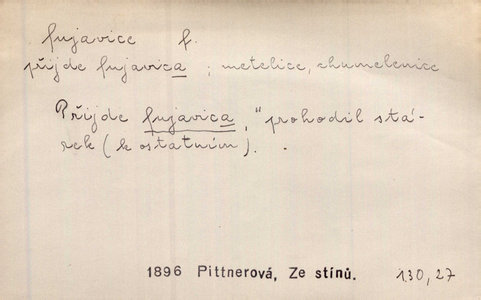 fujavice f.
přijde fujavica ; metelice, chumelenice
Přijde fujavica," prohodil stá-
rek (k ostatním).
1896 Pittnerová, Ze stínů. 130,27